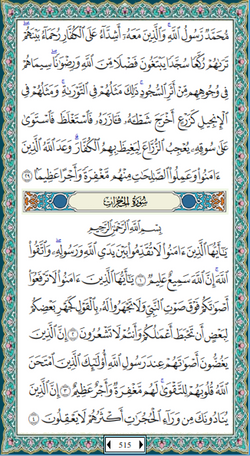 مُّحَمَّدٌ رَّسُولُ ٱللَّهِ ۚ وَٱلَّذِينَ مَعَهُۥٓ أَشِدَّآءُ عَلَى ٱلْكُفَّارِ رُحَمَآءُ بَيْنَهُمْ ۖ
تَرَىٰهُمْ رُكَّعًا سُجَّدًا يَبْتَغُونَ فَضْلًا مِّنَ ٱللَّهِ وَرِضْوَٰنًا ۖ سِيمَاهُمْ
فِى وُجُوهِهِم مِّنْ أَثَرِ ٱلسُّجُودِ ۚ ذَٰلِكَ مَثَلُهُمْ فِى ٱلتَّوْرَىٰةِ ۚ وَمَثَلُهُمْ فِى
ٱلْإِنجِيلِ كَزَرْعٍ أَخْرَجَ شَطْـَٔهُۥ فَـَٔازَرَهُۥ فَٱسْتَغْلَظَ فَٱسْتَوَىٰ
عَلَىٰ سُوقِهِۦ يُعْجِبُ ٱلزُّرَّاعَ لِيَغِيظَ بِهِمُ ٱلْكُفَّارَ ۗ وَعَدَ ٱللَّهُ ٱلَّذِينَ
ءَامَنُوا۟ وَعَمِلُوا۟ ٱلصَّٰلِحَٰتِ مِنْهُم مَّغْفِرَةً وَأَجْرًا عَظِيمًۢا ٢٩
سُورَةُ الحُجُرَاتِ
بِسْمِ ٱللَّهِ ٱلرَّحْمَٰنِ ٱلرَّحِيمِ
يَٰٓأَيُّهَا ٱلَّذِينَ ءَامَنُوا۟ لَا تُقَدِّمُوا۟ بَيْنَ يَدَىِ ٱللَّهِ وَرَسُولِهِۦ ۖ وَٱتَّقُوا۟
ٱللَّهَ ۚ إِنَّ ٱللَّهَ سَمِيعٌ عَلِيمٌ ١ يَٰٓأَيُّهَا ٱلَّذِينَ ءَامَنُوا۟ لَا تَرْفَعُوٓا۟
أَصْوَٰتَكُمْ فَوْقَ صَوْتِ ٱلنَّبِىِّ وَلَا تَجْهَرُوا۟ لَهُۥ بِٱلْقَوْلِ كَجَهْرِ بَعْضِكُمْ
لِبَعْضٍ أَن تَحْبَطَ أَعْمَٰلُكُمْ وَأَنتُمْ لَا تَشْعُرُونَ ٢ إِنَّ ٱلَّذِينَ
يَغُضُّونَ أَصْوَٰتَهُمْ عِندَ رَسُولِ ٱللَّهِ أُو۟لَٰٓئِكَ ٱلَّذِينَ ٱمْتَحَنَ
ٱللَّهُ قُلُوبَهُمْ لِلتَّقْوَىٰ ۚ لَهُم مَّغْفِرَةٌ وَأَجْرٌ عَظِيمٌ ٣ إِنَّ ٱلَّذِينَ
يُنَادُونَكَ مِن وَرَآءِ ٱلْحُجُرَٰتِ أَكْثَرُهُمْ لَا يَعْقِلُونَ ٤
515